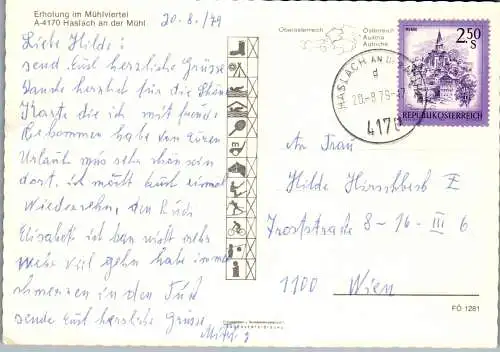 Erholung im Mühlviertel
A-4170 Haslach an der Mühl
20.8./79
Liebe Hilde!
send Eüch herzliche Grüsse
Danke herzlich für die Schöne
Karte die ich mit freude
Bekommen habe von Eüren
Urlaub müs sehr schön sein
dort. ich möcht Eüch einmal
Wiedersehn, den Rudi
Elisabeth ich kan nicht mehr
viel gehn habe immer
schmerzen in den Füs
sende Eüch herzliche Grüsse
Oberösterreich
Österreich
Austria
Autriche
HASLACH AN DER
d
20.-8.79-17
4170
MURAU
2.50
S
REPUBLIK ÖSTERREICH
An Frau
Hilde Hirschbeck
Troststrasse 8-16 III 6
1100 Wien
FÖ 1281